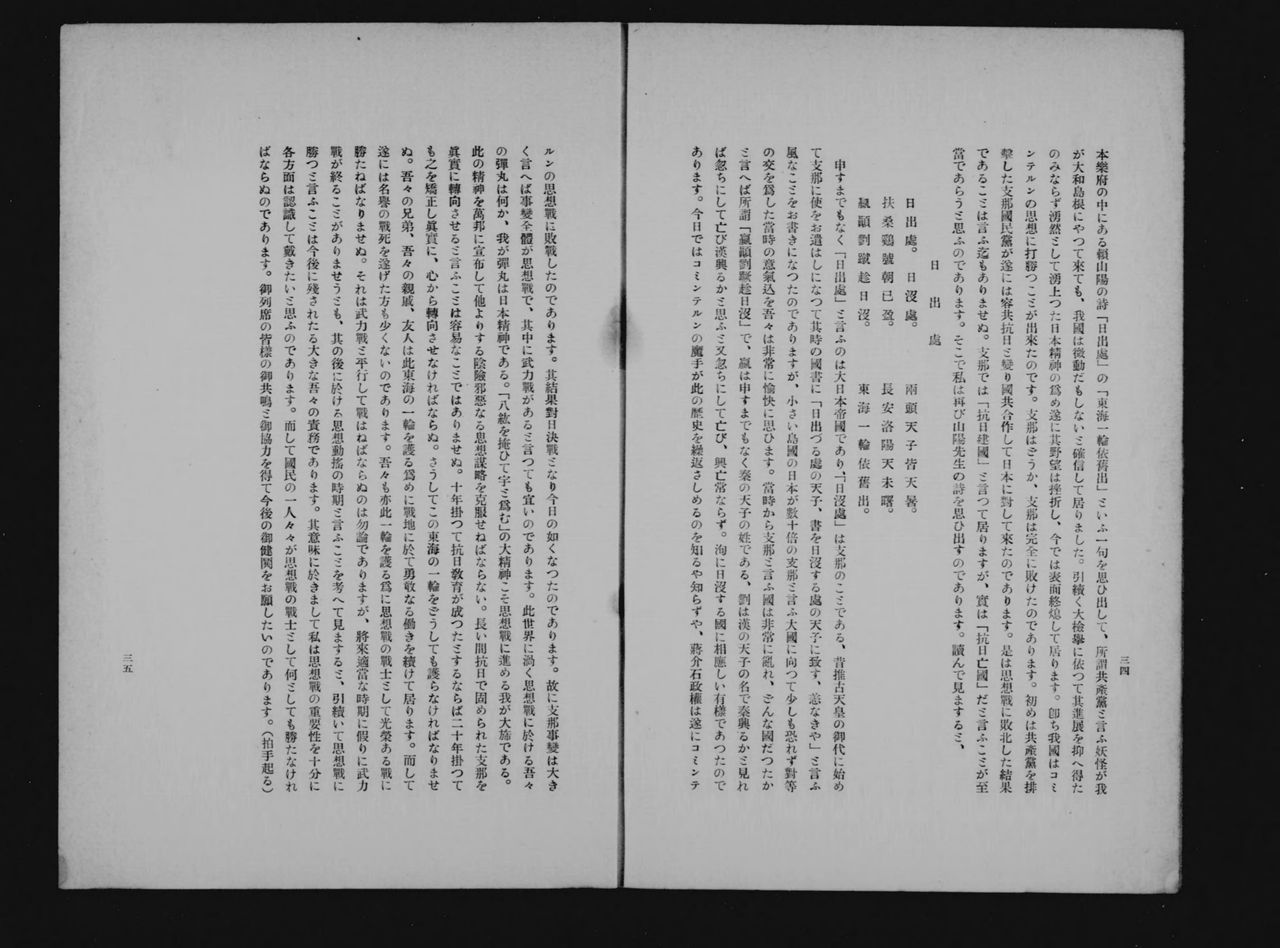 三四
本樂府の中にある頼山陽の詩「日出處」の「東海一輪依舊出」といふ一句を思ひ出して、所謂共產黨と言ふ妖怪が我
が大和島根にやつて來ても、我國は微動だもしないと確信して居りました。引續く大檢擧に依つて其進展を抑へ得た
のみならず湧然として湧上つた日本精神の爲め遂に其野望は挫折し、今では表面終熄して居ります。卽ち我國はコミ
ンテルンの思想に打勝つことが出來たのです。支那はどうか、支那は完全に敗けたのであります。初めは共產黨を排
擊した支那國民黨が遂には容共抗日と變り國共合作して日本に對して來たのであります。是は思想戰に敗北した結果
であることは言ふ迄もありませぬ。支那では「抗日建國」と言つて居りますが、實は「抗日亡國」だと言ふことが至
當であらうと思ふのであります。そこで私は再び山陽先生の詩を思ひ出すのであります。讀んで見ますると、
日出處
日出處。日沒處。　兩頭天子皆天暑。
扶桑鷄號朝已盈。　長安洛陽天未曙。
嬴顚劉蹶趁日沒。　東海一輪依舊出。
申すまでもなく「日出處」と言ふのは大日本帝國であり、「日沒處」は支那のことである、昔推古天皇の御代に始め
て支那に使をお遣はしになつて其時の國書に「日出づる處の天子、書を日沒する處の天子に致す、恙なきや」と言ふ
風なことをお書きになつたのでありますが、小さい島國の日本が數十倍の支那と言ふ大國に向つて少しも恐れず對等
の交を爲した當時の意氣込を吾々は非常に愉快に思ひます。當時から支那と言ふ國は非常に亂れ、どんな國だつたか
と言へば所謂「嬴顚劉蹶趁日沒」で、嬴は申すまでもなく秦の天子の姓である、劉は漢の天子の名で秦興るかと見れ
ば忽ちにして亡び漢興るかと思ふと又忽ちにして亡び、興亡常ならず。洵に日沒する國に相應しい有樣であつたので
あります。今日ではコミンテルンの魔手が此の歷史を繰返さしめるのを知るや知らずや、蔣介石政權は遂にコミンテ
ルンの思想戰に敗戰したのであります。其結果對日決戰となり今日の如くなつたのであります。故に支那事變は大き
く言へば事變全體が思想戰で、其中に武力戰があると言つても宜いのであります。此世界に渦く思想戰に於ける吾々
の彈丸は何か、我が彈丸は日本精神である。「八紘を掩ひて宇と爲む」の大精神こそ思想戰に進める我が大旆である。
此の精神を萬邦に宣布して他よりする陰險邪惡なる思想謀略を克服せねばならない。長い間抗日で固められた支那を
眞實に轉向させると言ふことは容易なことではありませぬ。十年掛つて抗日敎育が成つたとするならば二十年掛つて
も之を矯正し眞實に、心から轉向させなければならぬ。さうしてこの東海の一輪をどうしても護らなければなりませ
ぬ。吾々の兄弟、吾々の親戚、友人は此東海の一輪を護る爲めに戰地に於て勇敢なる働きを續けて居ります。而して
遂には名譽の戰死を遂げた方も少くないのであります。吾々も亦此一輪を護る爲に思想戰の戰士として光榮ある戰に
勝たねばなりませぬ。それは武力戰と平行して戰はねばならぬのは勿論でありますが、將來適當な時期に假りに武力
戰が終ることがありませうとも、其の後に於ける思想動搖の時期と言ふことを考へて見ますると、引續いて思想戰に
勝つと言ふことは今後に殘されたる大きな吾々の責務であります。其意味に於きまして私は思想戰の重要性を十分に
各方面は認識して戴きたいと思ふのであります。而して國民の一人々々が思想戰の戰士として何としても勝たなけれ
ばならぬのであります。御列席の皆樣の御共鳴と御協力を得て今後の御健鬪をお願したいのであります。（拍手起る）
三五